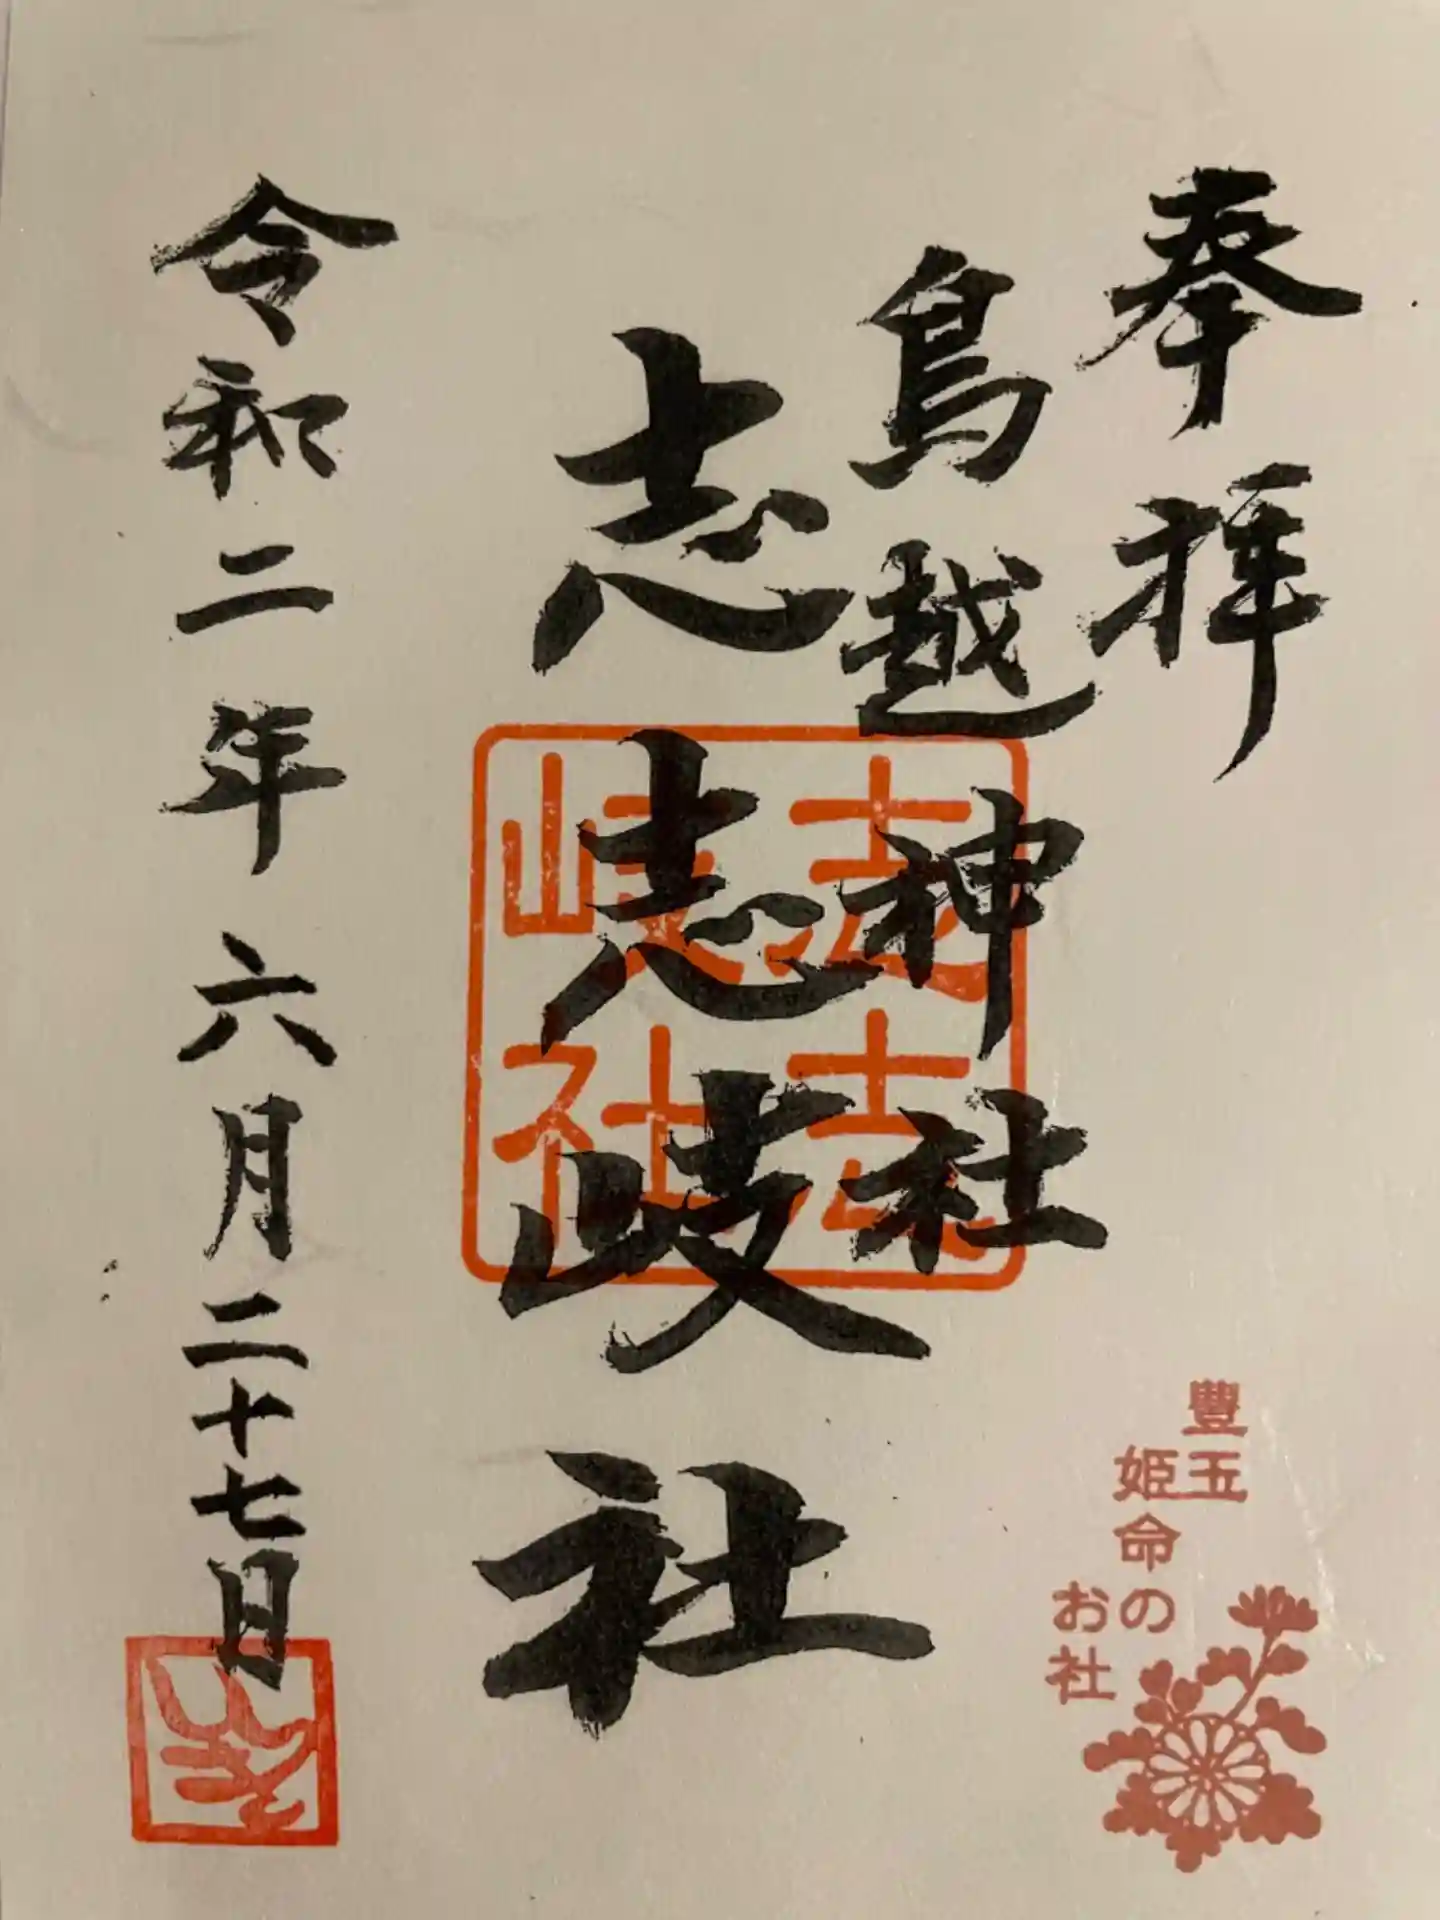 奉拝
鳥越神社
志志岐社
志志
岐社
令和二年六月二十七日
豐玉
姫命の
お社